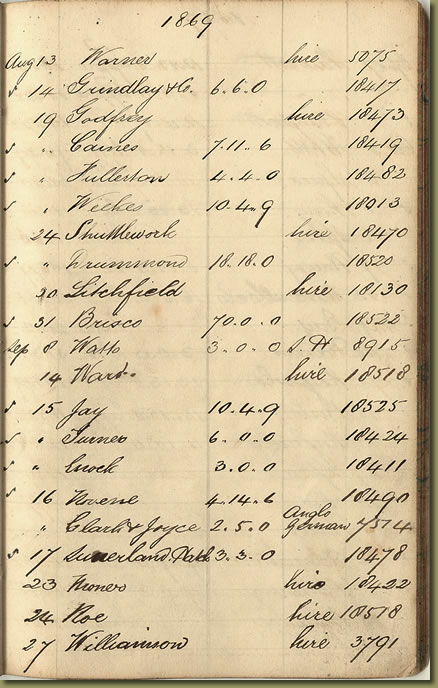 1869
Aug 13 Warner hire 5075
s 14 Grindlay & Co. 6.6.0 18417
19 Godfrey hire 18473
s " Caines 7.11.6 18419
s " Fullerton 4.4.0 18482
s " Wilkes 10.4.9 18013
24 Shuttlework hire 18470
s " Drummond 18.18.0 18520
30 Litchfield hire 18130
s 31 Brisco 70.0.0 18522
Sep 8 Watts 3.0.0 S.H 8915
14 Ward hire 18518
s 15 Jay 10.4.9 18525
s " Turner 6.0.0 18424
s " Enock 3.0.0 18411
s 16 4.14.6 18490
" Clark & Joyce 2.5.0 Anglo German 7514
s 17 3.3.0 18478
23 hire 18422
24 Roe hire 18518
27 Williamson hire 3791